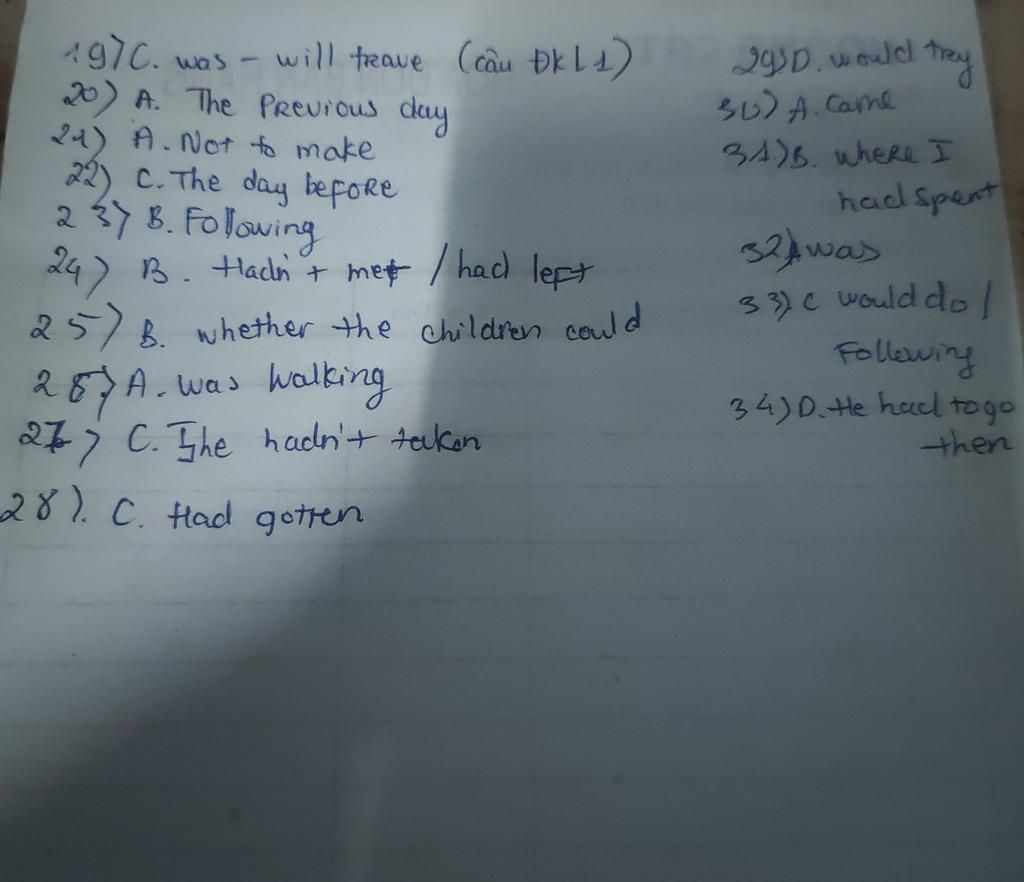 19) C. was - will trave (câu ĐKL1)
20) A. The Previous day
21) A. Not to make
22) C. The day before
23) B. Following
24) B. Hadn't met / had left
25) B. whether the children could
26) A. was walking
27) C. She hadn't taken
28). C. Had gotten
29) D. would trey
30) A. Came
31) B. where I
had spent
32) A was
33) C would do /
Following
34) D. He had to go
then